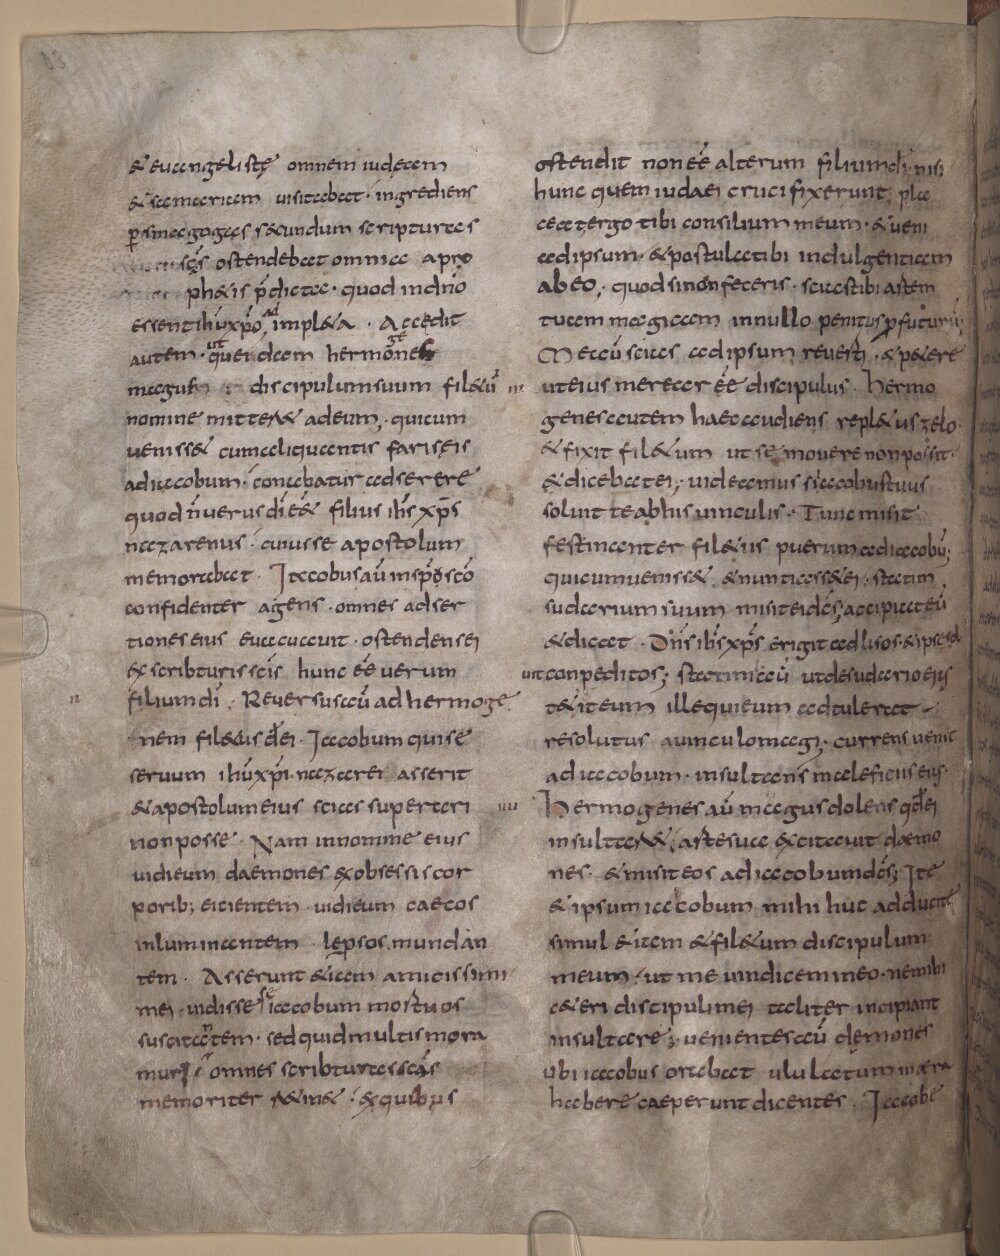 & euangelistę omnem iudeam
& samariam visitabat · ingrediens
p sinagogas secundum scripturas
scās ostendebat omnia a pro
ph&is p̄dicta · quod in dn̄o
essent ihū xp̄o ad impl&a · Accedit
autem · ut quendam hermogenes
magus discipulum suum fil&ū
nomine mitter& ad eum · quicum
veniss& cum aliquantis fariseis
ad iacobum · conabatur adserere
quod n̄ verus dī e& filius ihs xp̄s
nazarenus · cuius se apostolum
memorabat · Iacobus aū in sp̄u scō
confidenter agens · omnes adser
tiones eius euacuauit · ostendens ei
ex scribturis scīs hunc eē verum
filium dī · Reversus aū ad hermoge
nem fil&us d̄ ei · Iacobum qui se
servum ihū xp̄i nazarei asserit
& apostolum eius scias superari
non posse · Nam in nomine eius
vidi eum daemones ex obsessis cor
porib; eicientem · vidi eum caecos
inluminantem · leprosos mundan
tem · Asserunt &iam amicissimi
mei · vidisse se iacobum mortuos
suscitantem · sed quid multis mora
mur · omnes scribturas scās
memoriter r&in& · ex quibus
ostendit non eē alterum filium dī · nisi
hunc quem iudaei crucifixerunt; pla
ceat ergo tibi consilium meum · & veni
ad ipsum · & postula tibi indulgentiam
ab eo · quod si non feceris · scias tibi artem
tuam magicam in nullo penitus profuturā;
Me aū scias ad ipsum reverti · & petere
ut eius merear eē discipulus · Hermo
genes autem haec audiens repl&us zelo
& fixit fil&um ut se movere non possit
& dicebat ei; videamus si iacobus tuus
soluit te ab his vinculis · Tunc misit
festinanter fil&us puerum ad iacobū;
qui cum veniss& & nuntiass& ei · statim
sudarium suum misit ei dc̄s; accipiat eū
& dicat · Dn̄s ihs xp̄s erigit adlisos · & ipse
conpeditos; statim aū ut de sudario eius
t&it eum ille qui eum adtulerat
resolutus a vinculo magi · currens venit
ad iacobum · insultans maleficiis eius
Hermogenes aū magus dolens qd̄ ei
insultar& · arte sua excitauit daemo
nes · & misit eos ad iacobum dc̄s; Ite
& ipsum iacobum mihi huc adducite
simul & item & fil&um discipulum
meum · ut me vindicem in eo · ne mihi
c&eri discipuli mei taliter incipiant
insultare; venientes aū demones
ubi iacobus orabat ululatum in aera
habere caeperunt dicentes · Iacobe